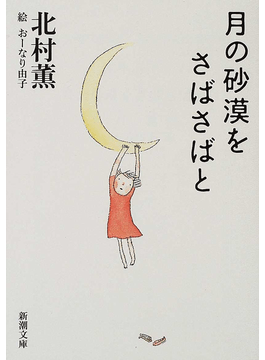 月の砂漠を
さばさばと
北村薫
絵 おーなり由子
新潮文庫